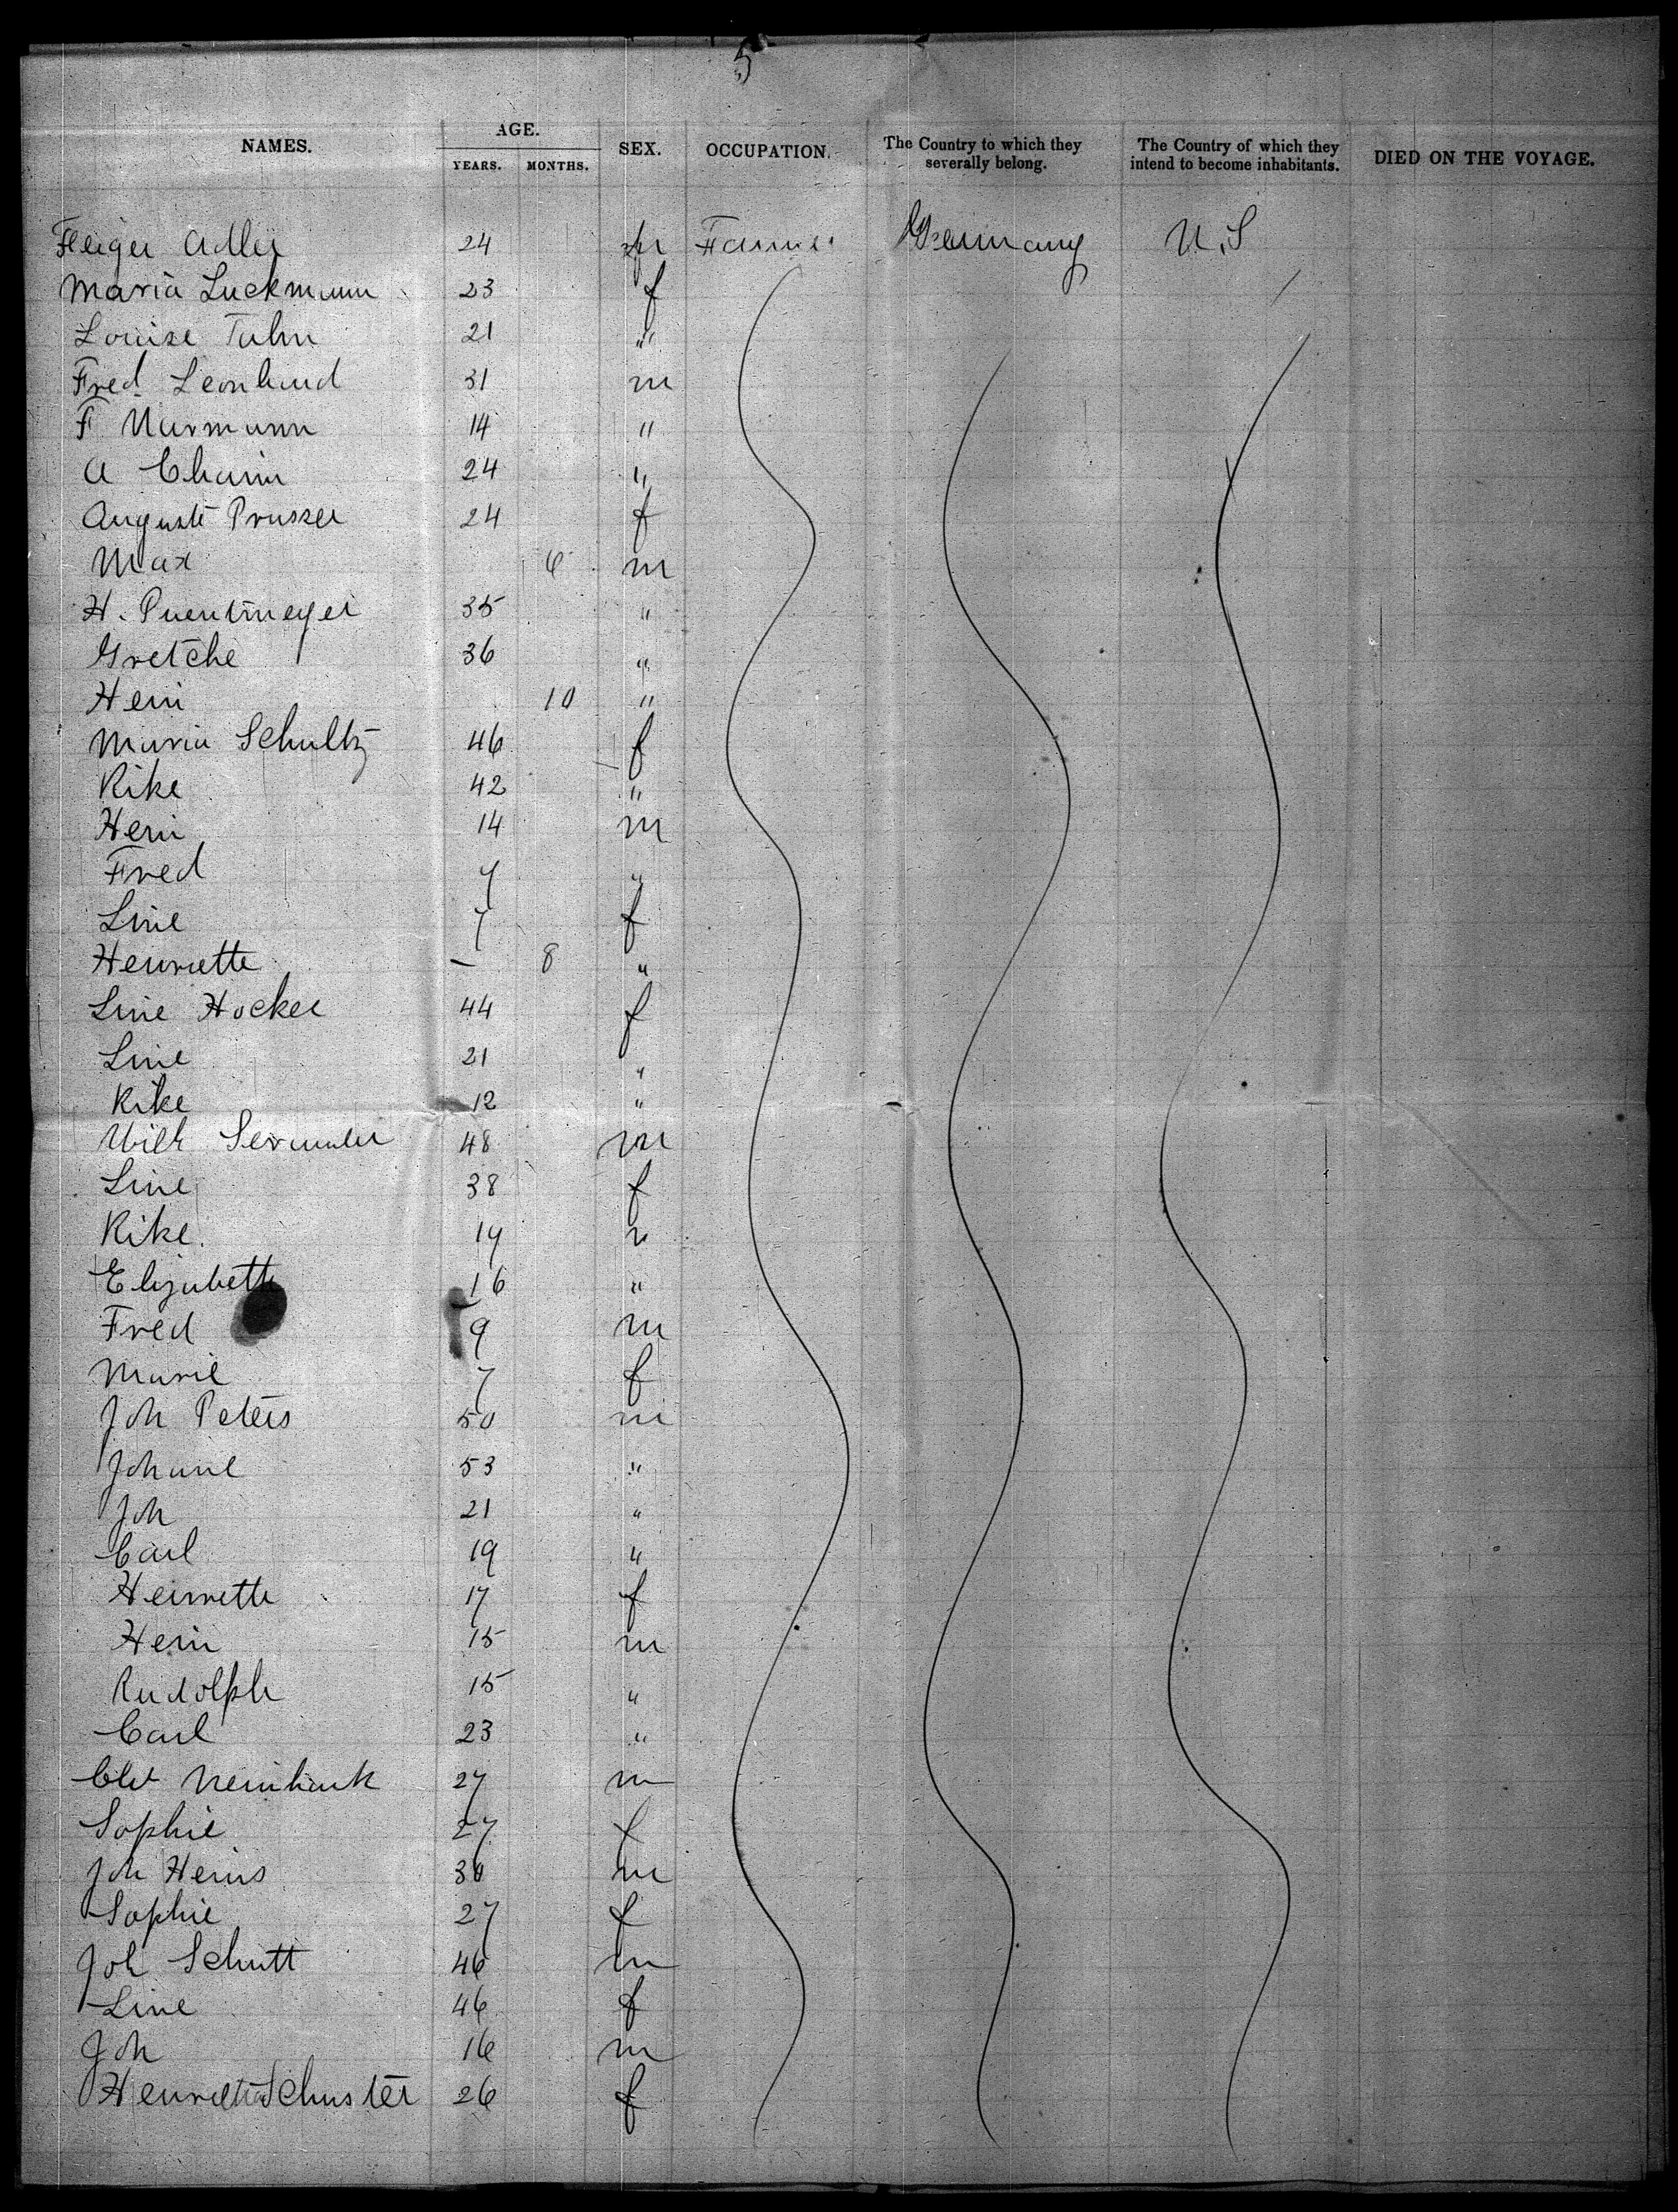 5
NAMES. AGE. YEARS. MONTHS. SEX. OCCUPATION. The Country to which they severally belong. The Country of which they intend to become inhabitants. DIED ON THE VOYAGE.
Adler 24 m Farmer Germany U.S
Maria Luckmann 23 f
Louise 21 "
Fred Leonhard 31 m
F 14 "
A 24 "
Auguste Prusser 24 f
Max 6 m
H. 35 "
Gretche 36 "
Heni 10 "
Maria Schultz 46 f
Rike 42 "
Heni 14 m
Fred 7 "
Line 7 f
Henriette — 8 "
Line Hocker 44 f
Line 21 "
Rike 12 "
Wilh 48 m
Line 38 f
Rike 19 "
Elizabeth 16 "
Fred 9 m
Marie 7 f
Joh Peters 50 m
Johane 53 "
Joh 21 "
Carl 19 "
Henrette 17 f
Heni 15 m
Rudolph 15 "
Carl 23 "
27 m
Sophie 27 f
Joh Heins 30 m
Sophie 27 f
Joh Schutt 46 m
Line 46 f
Joh 16 m
Henrietta Schuster 26 f